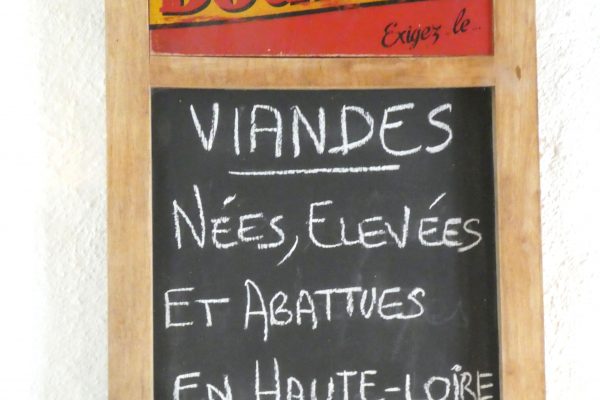 Exigez-le...
VIANDES
NÉES, ELEVÉES
ET ABATTUES
EN HAUTE-LOIRE